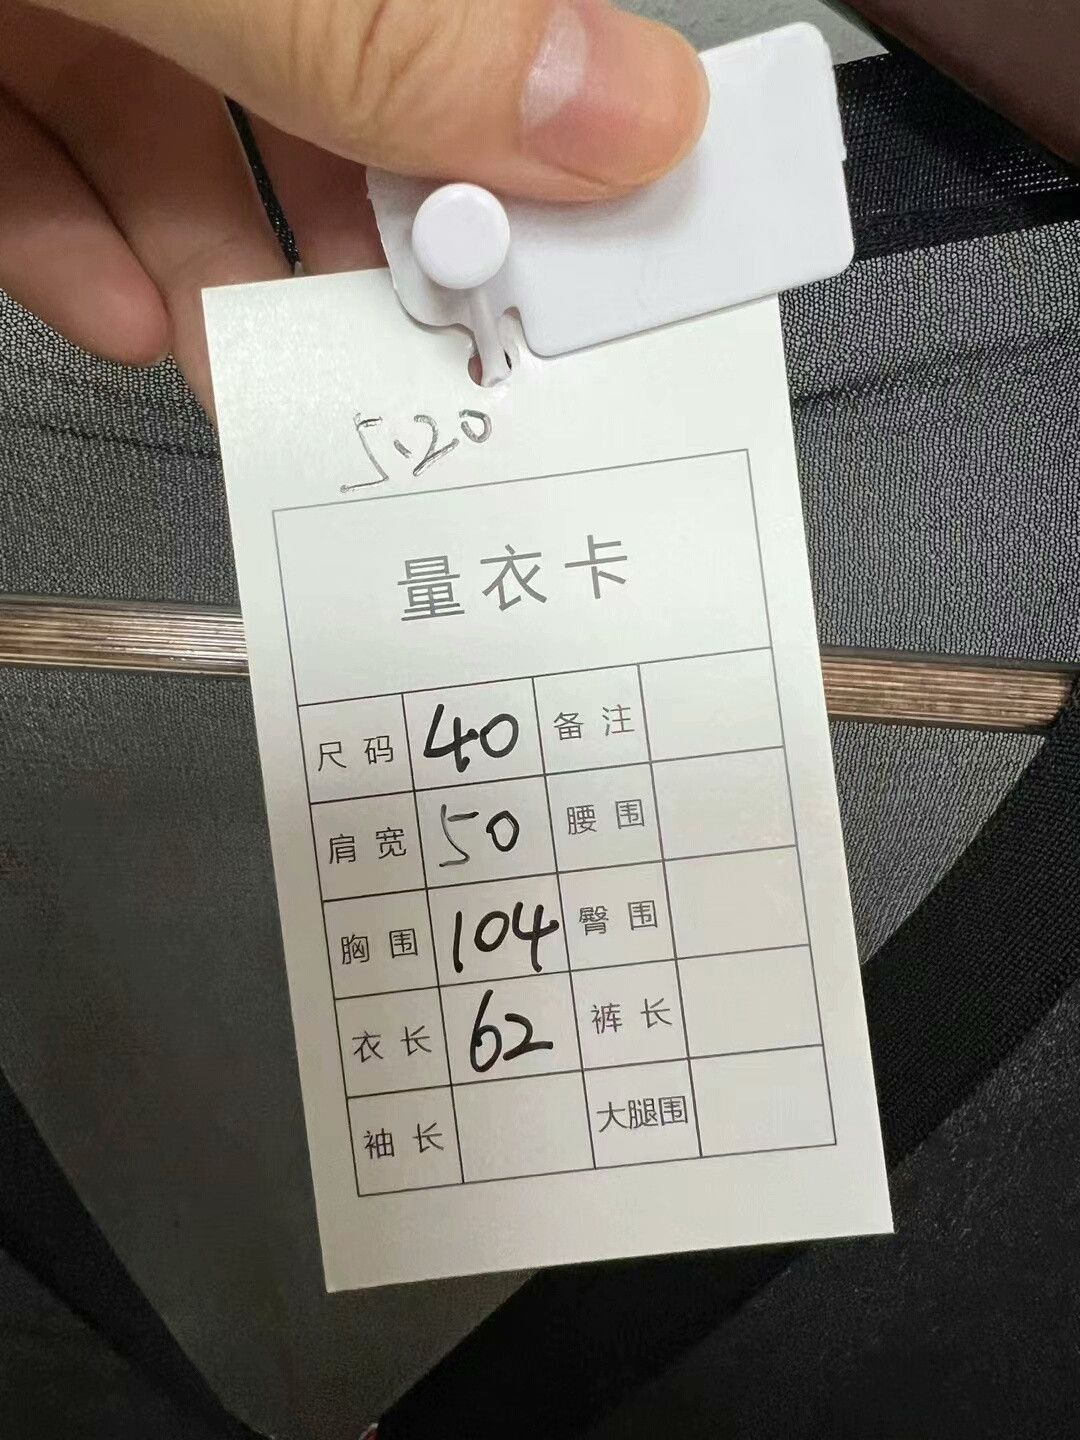 5.20
量衣卡
尺码 40 备注
肩宽 50 腰围
胸围 104 臀围
衣长 62 裤长
袖长 大腿围